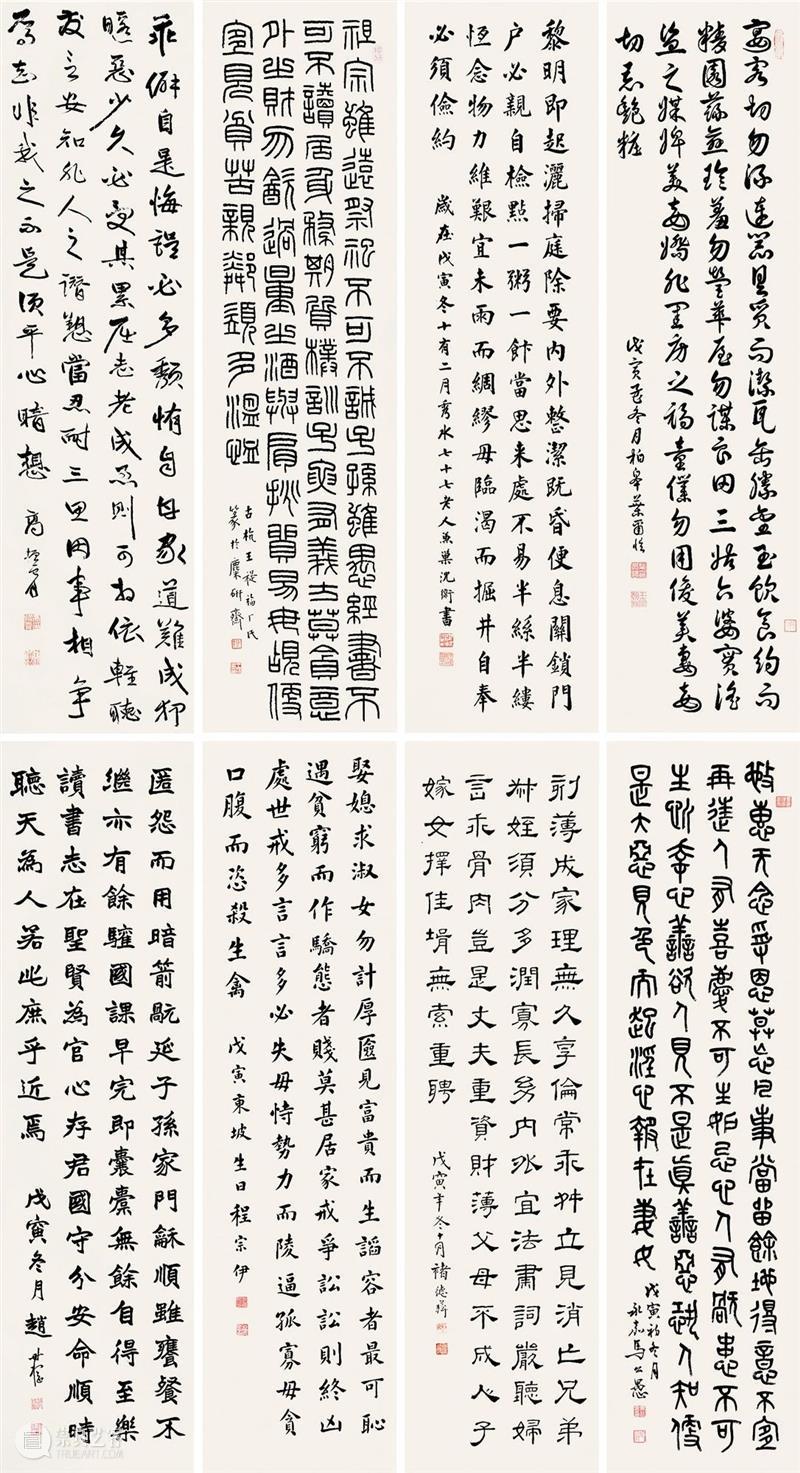 宴客切勿流連器具質而潔瓦缶勝金玉飲食約而
精園蔬愈珍羞勿營華屋勿謀良田三姑六婆實淫
盜之媒婢美妾嬌非閨房之福童僕勿用俊美妻妾
切忌艷粧
戊寅孟冬月柏皋葉爾愷
黎明即起灑掃庭除要內外整潔既昏便息關鎖門
户必親自檢點一粥一飰當思来處不易半絲半縷
恆念物力維艱宜未雨而綢繆毋臨渴而掘井自奉
必須儉約
歲在戊寅冬十有二月秀水七十七老人袌巢沈衛書
祖宗雖遠祭祀不可不誠子孫雖愚經書不
可不讀居身務期質樸訓子要有義方莫貪意
外之財勿飲過量之酒與肩挑貿易毋覘便
宜見貧苦親鄰須多溫恤
古杭王禔福厂氏
篆於麋研齋
乖僻自是悔誤必多頹惰自甘家道難成狎
暱惡少久必受其累屈志老成急則可相依輕聽
發言安知非人之譖愬當忍耐三思因事相爭
焉知非我之不是須平心暗想 高振霄
施惠无念受恩莫忘凡事當留餘地得意不宜
再往人有喜慶不可生妒忌心人有禍患不可
生喜幸心善欲人見不是真善惡恐人知便
是大惡見色而起淫心報在妻女
戊寅初冬月
永嘉馬公愚
刻薄成家理無久享倫常乖舛立見消亡兄弟
叔姪須分多潤寡長幼內外宜法肅詞嚴聽婦
言乖骨肉豈是丈夫重資財薄父母不成人子
嫁女擇佳壻無索重聘
戊寅年冬十月褚德彝
娶媳求淑女勿計厚匳見富貴而生諂容者最可恥
遇貧窮而作驕態者賤莫甚居家戒爭訟訟則終凶
處世戒多言言多必失毋恃勢力而陵逼孤寡毋貪
口腹而恣殺生禽
戊寅東坡生日程宗伊
匿怨而用暗箭禍延子孫家門龢順雖饔餐不
繼亦有餘驩國課早完即囊橐無餘自得至樂
讀書志在聖賢為官心存君國守分安命順時
聽天為人若此庶乎近焉
戊寅冬月趙